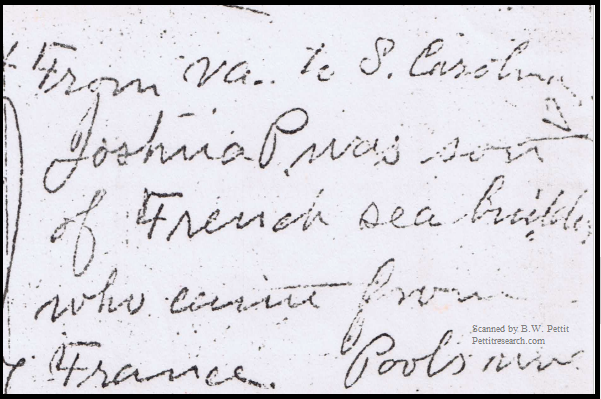 From Va. to S. Carolina
Joshua P. was son
of French sea builder
who came from
France. Pools
Scanned by B.W. Pettit
Pettitresearch.com